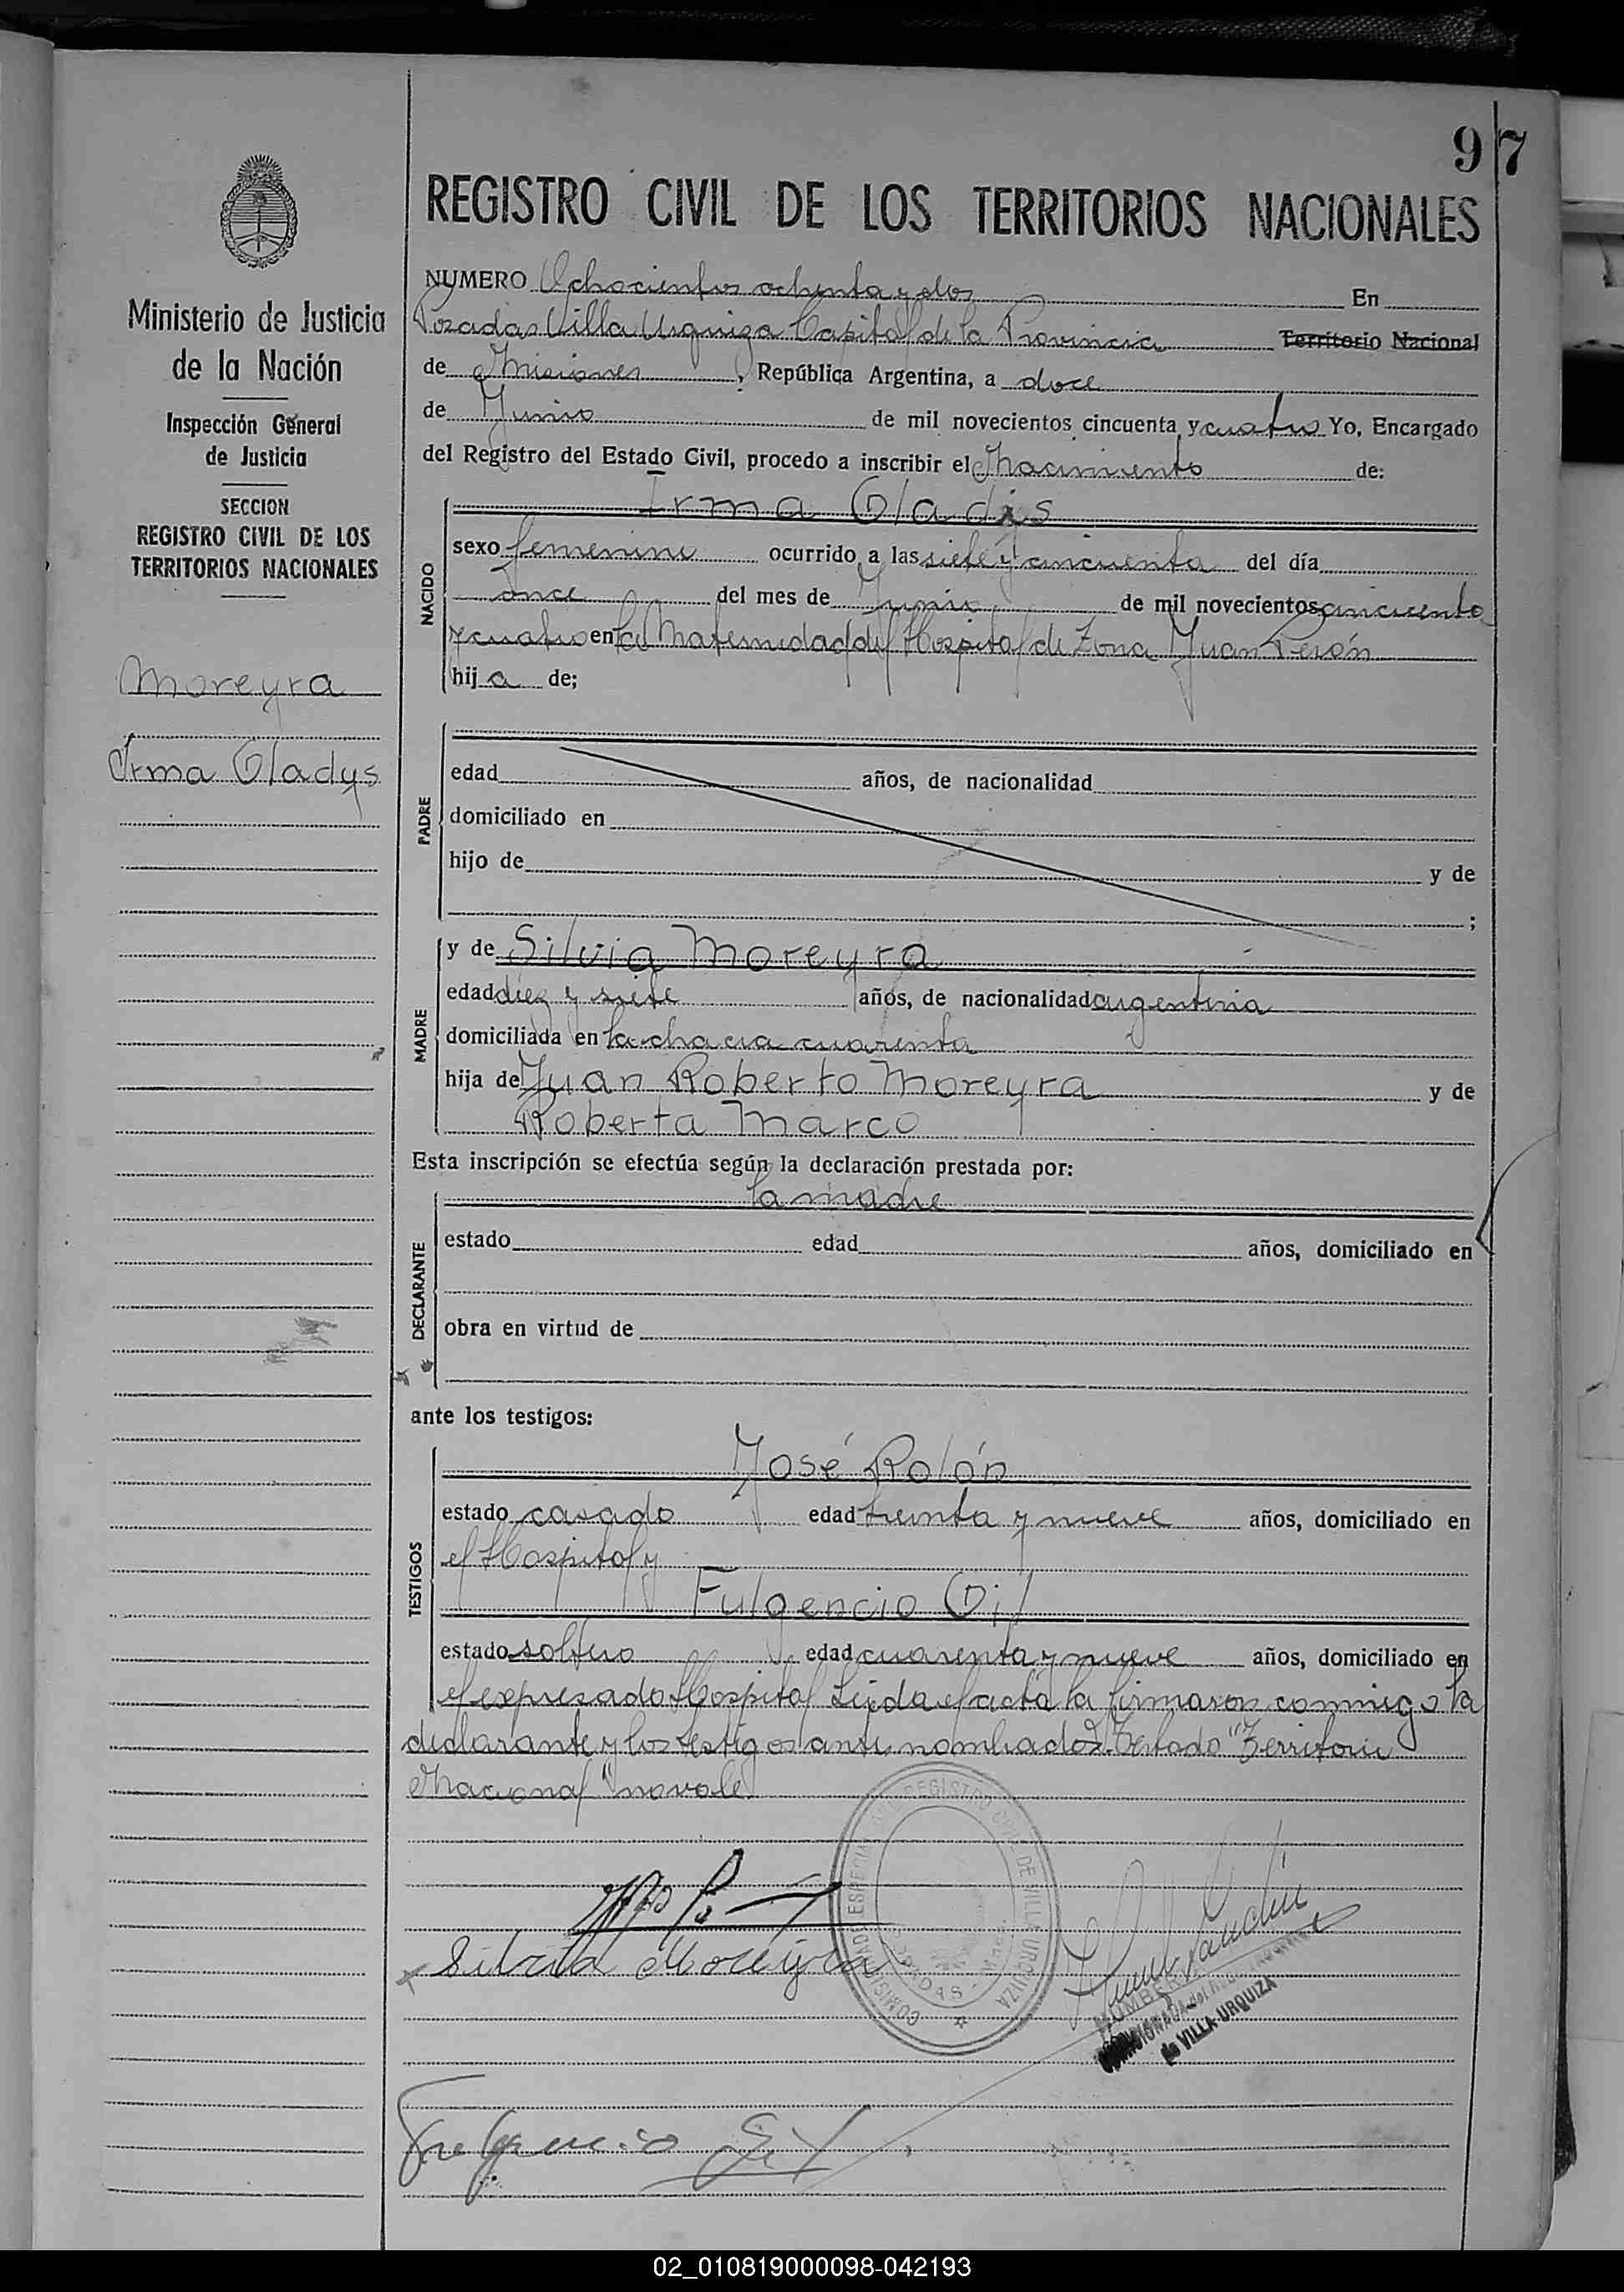 97
REGISTRO CIVIL DE LOS TERRITORIOS NACIONALES
Ministerio de Justicia
de la Nación
Inspección General
de Justicia
SECCION
REGISTRO CIVIL DE LOS
TERRITORIOS NACIONALES
Moreyra
Irma Gladys
NUMERO Ochocientos ochenta y dos En
Posadas Villa Urquiza Capital de la Provincia Territorio Nacional
de Misiones, República Argentina, a doce
de Junio de mil novecientos cincuenta y cuatro Yo, Encargado
del Registro del Estado Civil, procedo a inscribir el Nacimiento de:
NACIDO
Irma Gladis
sexo femenino ocurrido a las siete y cincuenta del día
once del mes de Junio de mil novecientos cincuenta
y cuatro en la Maternidad del Hospital de Zona Juan Perón
hija de;
PADRE
edad años, de nacionalidad
domiciliado en
hijo de y de
;
MADRE
y de Silvia Moreyra
edad diez y siete años, de nacionalidad argentina
domiciliada en la chacra cuarenta
hija de Juan Roberto Moreyra y de
Roberta Marco
Esta inscripción se efectúa según la declaración prestada por:
DECLARANTE
la madre
estado edad años, domiciliado en
obra en virtud de
ante los testigos:
TESTIGOS
José Rolón
estado casado edad treinta y nueve años, domiciliado en
el Hospital y
Fulgencio Gil
estado soltero edad cuarenta y nueve años, domiciliado en
el expresado Hospital Leída el acta la firmaron conmigo la
declarante y los testigos antes nombrados Testado "Territorio
Nacional" no vale
Silvia Moreyra
COMISIONADO ESPECIAL DEL REGISTRO CIVIL DE VILLA URQUIZA
POSADAS - Mnes.
de VILLA URQUIZA
Fulgencio Gil
02_010819000098-042193